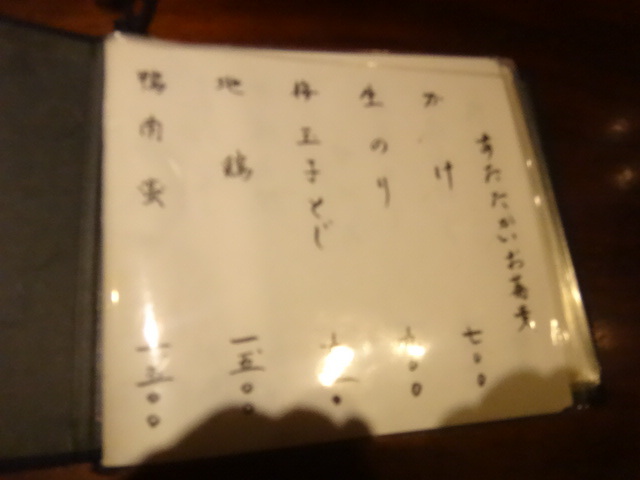 あたたかいお蕎麦
かけ 七〇〇
生のり
玉子とじ
地鶏 一、五〇〇
鴨南蛮 一、五〇〇